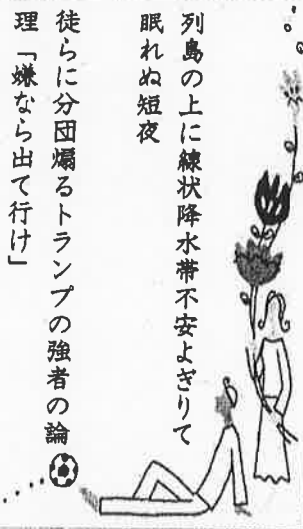 列島の上に線状降水帯不安よぎりて
眠れぬ短夜
徒らに分団煽るトランプの強者の論
理「嫌なら出て行け」